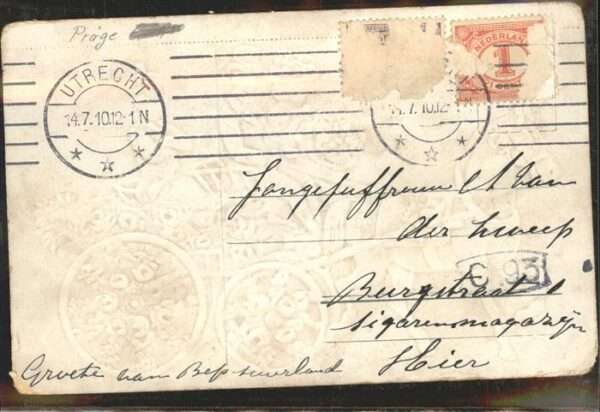 Präge
NEDERLAND
1
CENT
UTRECHT
14.7.10.12-1N
14.7.10.12-1
Jongejuffrouw A van
der Zweep
C 93
Burgstraat
sigarenmagazijn
Hier
Groete van Bep